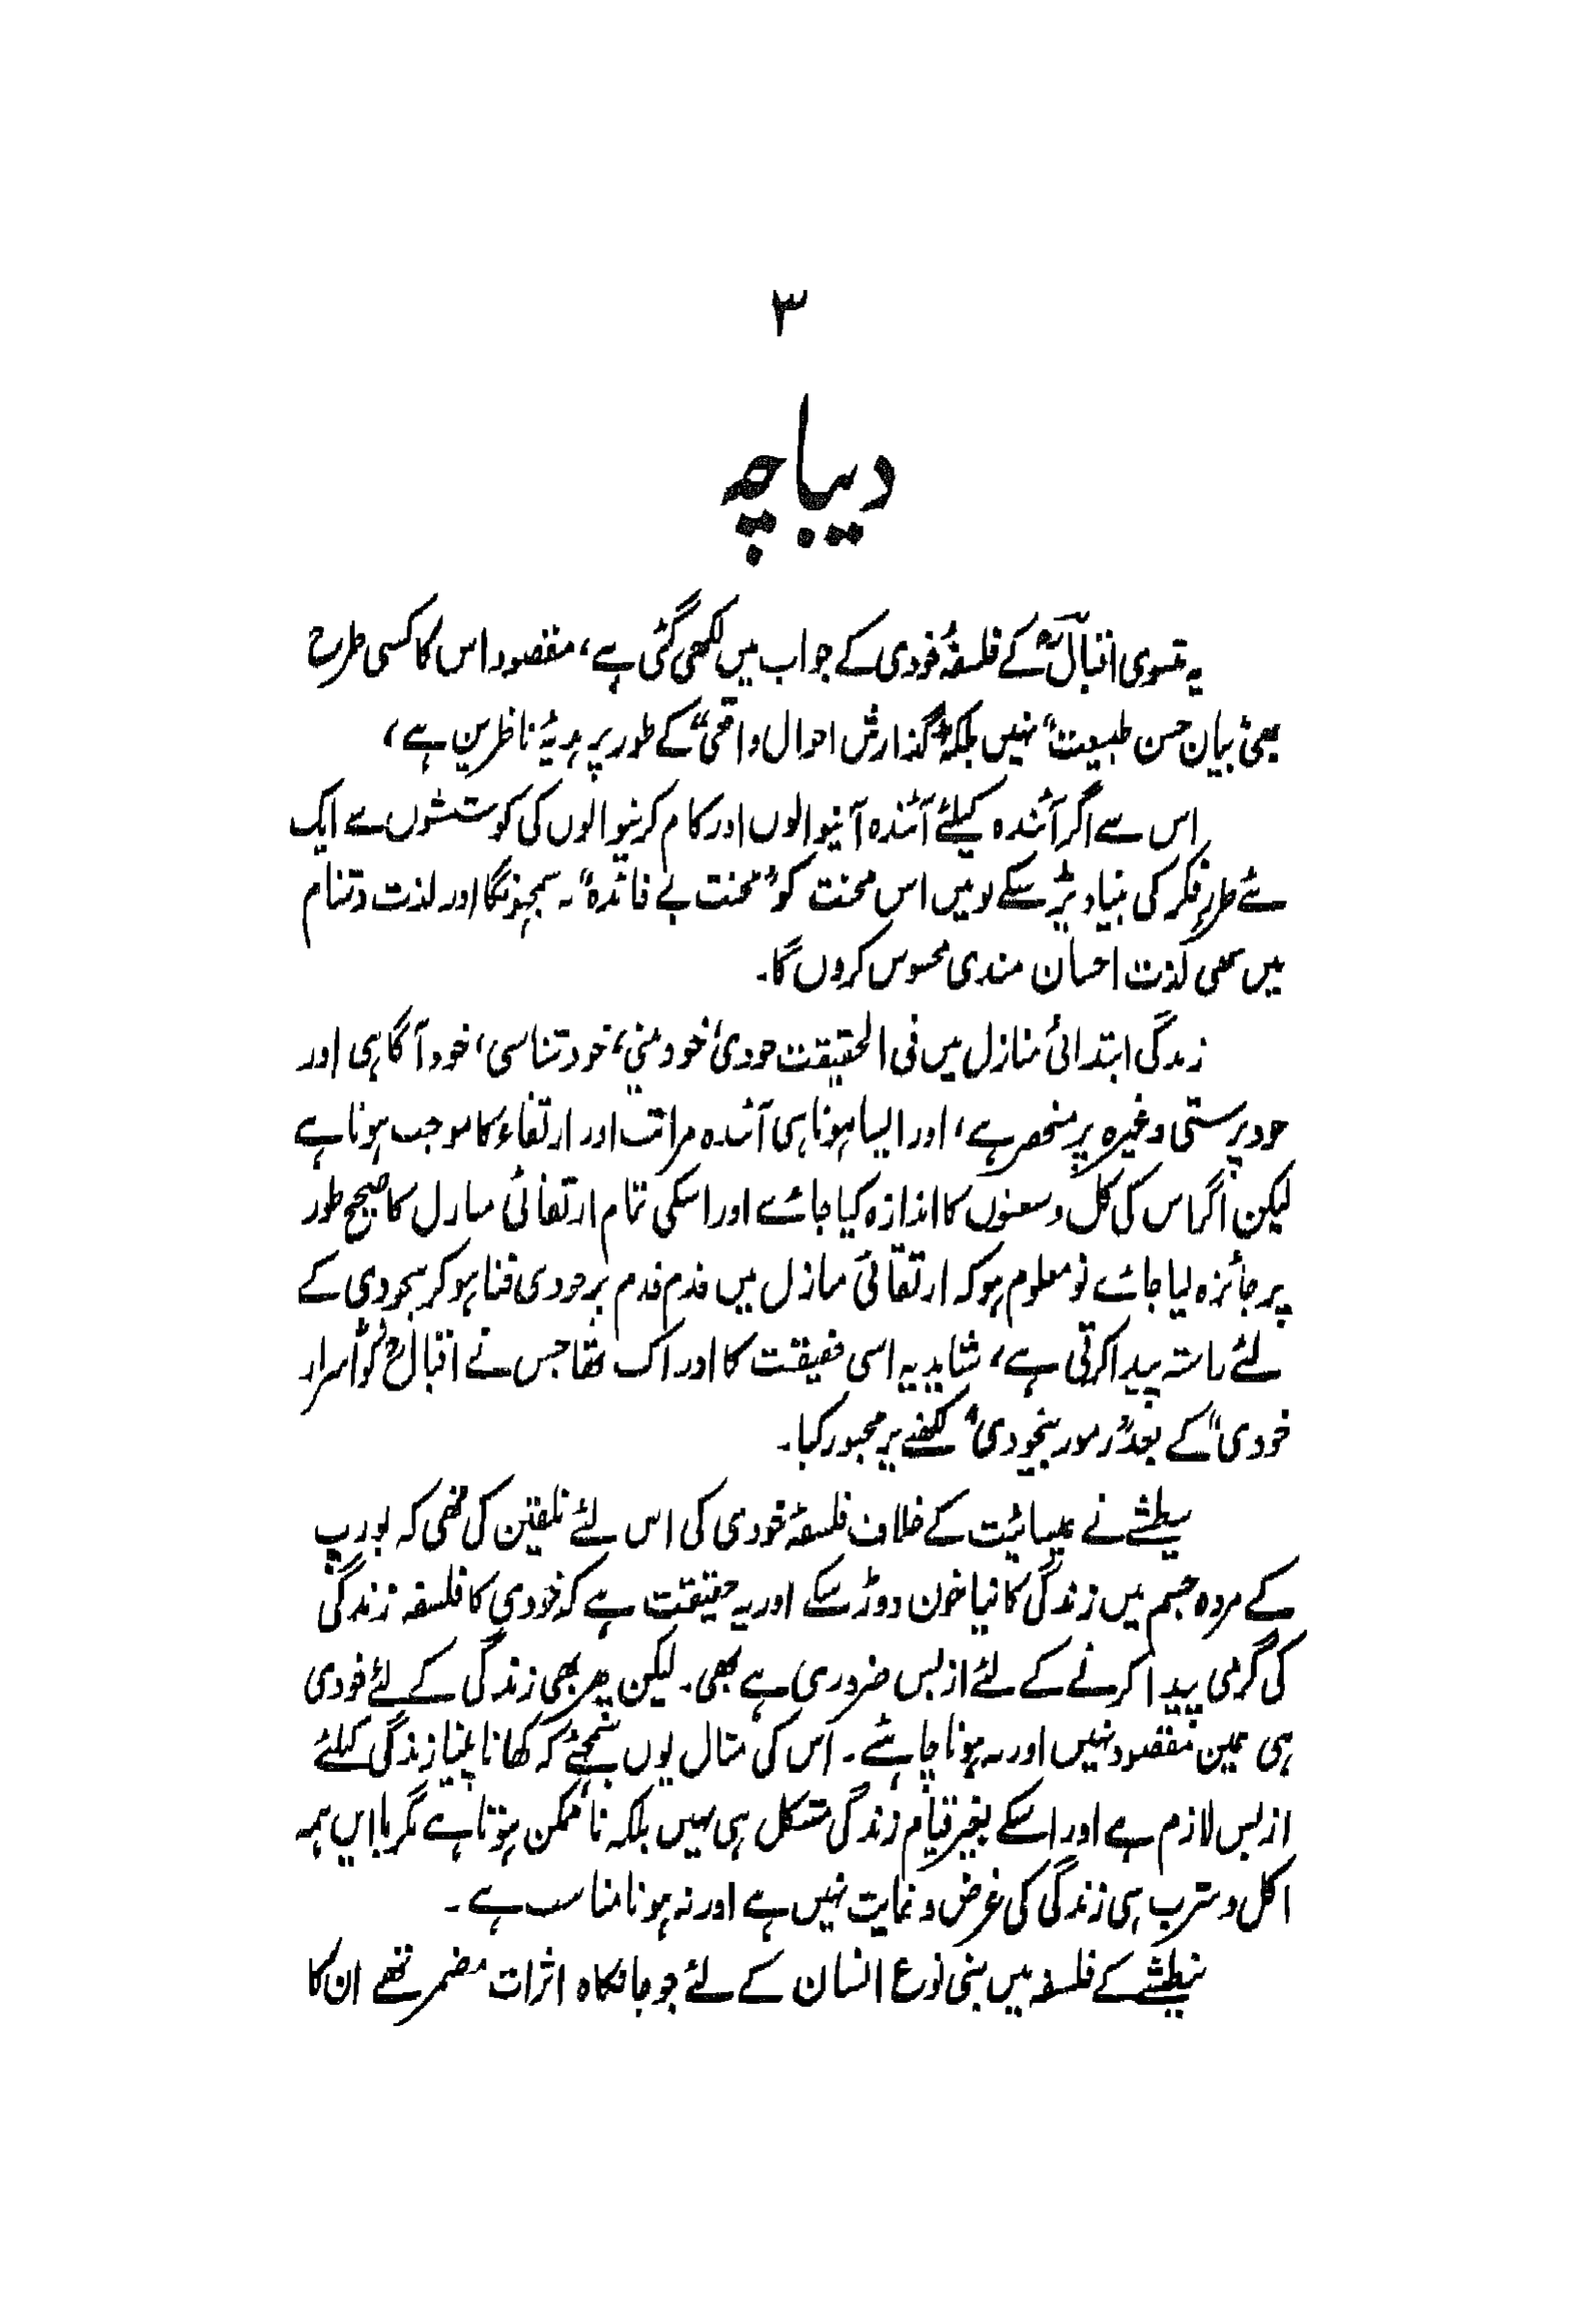 ۳
دیباچہ
یہ مثنوی اقبالؒ کے فلسفۂ خودی کے جواب میں لکھی گئی ہے، مقصود اس کا کسی طرح
بھی "بیان حسن طبیعت" نہیں بلکہ "گذارش احوال واقعی" کے طور پر ہدیۂ ناظرین ہے،
اس سے اگر آئندہ کیلئے آئندہ آنیوالوں اور کام کرنیوالوں کی کوششوں سے ایک
نئے طرز فکر کی بنیاد پڑ سکے تو میں اس محنت کو "محنت بے فائدہ" نہ سمجھونگا اور لذت دشنام
میں بھی لذت احسان مندی محسوس کروں گا۔
زندگی ابتدائی منازل میں فی الحقیقت خودی، خود بینی، خود شناسی، خود آگاہی اور
خود پرستی وغیرہ پر منحصر ہے، اور ایسا ہونا ہی آئندہ مراتب اور ارتقاء کا موجب ہوتا ہے
لیکن اگر اس کی کل وسعتوں کا اندازہ کیا جائے اور اسکی تمام ارتقائی منازل کا صحیح طور
پر جائزہ لیا جائے تو معلوم ہو کہ ارتقائی منازل میں قدم قدم پر خودی فنا ہو کر بیخودی کے
لئے راستہ پیدا کرتی ہے، شاید یہ اسی حقیقت کا ادراک تھا جس نے اقبالؒ کو "اسرار
خودی" کے بعد "رموز بیخودی" لکھنے پر مجبور کیا۔
نیطشے نے عیسائیت کے خلاف فلسفۂ خودی کی اس لئے تلقین کی تھی کہ یورپ
کے مردہ جسم میں زندگی کا نیا خون دوڑ سکے اور یہ حقیقت ہے کہ خودی کا فلسفہ زندگی
کی گرمی پیدا کرنے کے لئے از بس ضروری ہے بھی۔ لیکن پھر بھی زندگی کے لئے خودی
ہی عین مقصود نہیں اور نہ ہونا چاہئے۔ اس کی مثال یوں سمجھئے کہ کھانا پینا زندگی کیلئے
از بس لازم ہے اور اسکے بغیر قیام زندگی مشکل ہی نہیں بلکہ نا ممکن ہوتا ہے مگر با ایں ہمہ
اکل و شرب ہی زندگی کی غرض و غایت نہیں ہے اور نہ ہونا مناسب ہے۔
نیطشے کے فلسفہ میں بنی نوع انسان کے لئے جو جانکاہ اثرات مضمر تھے ان کا